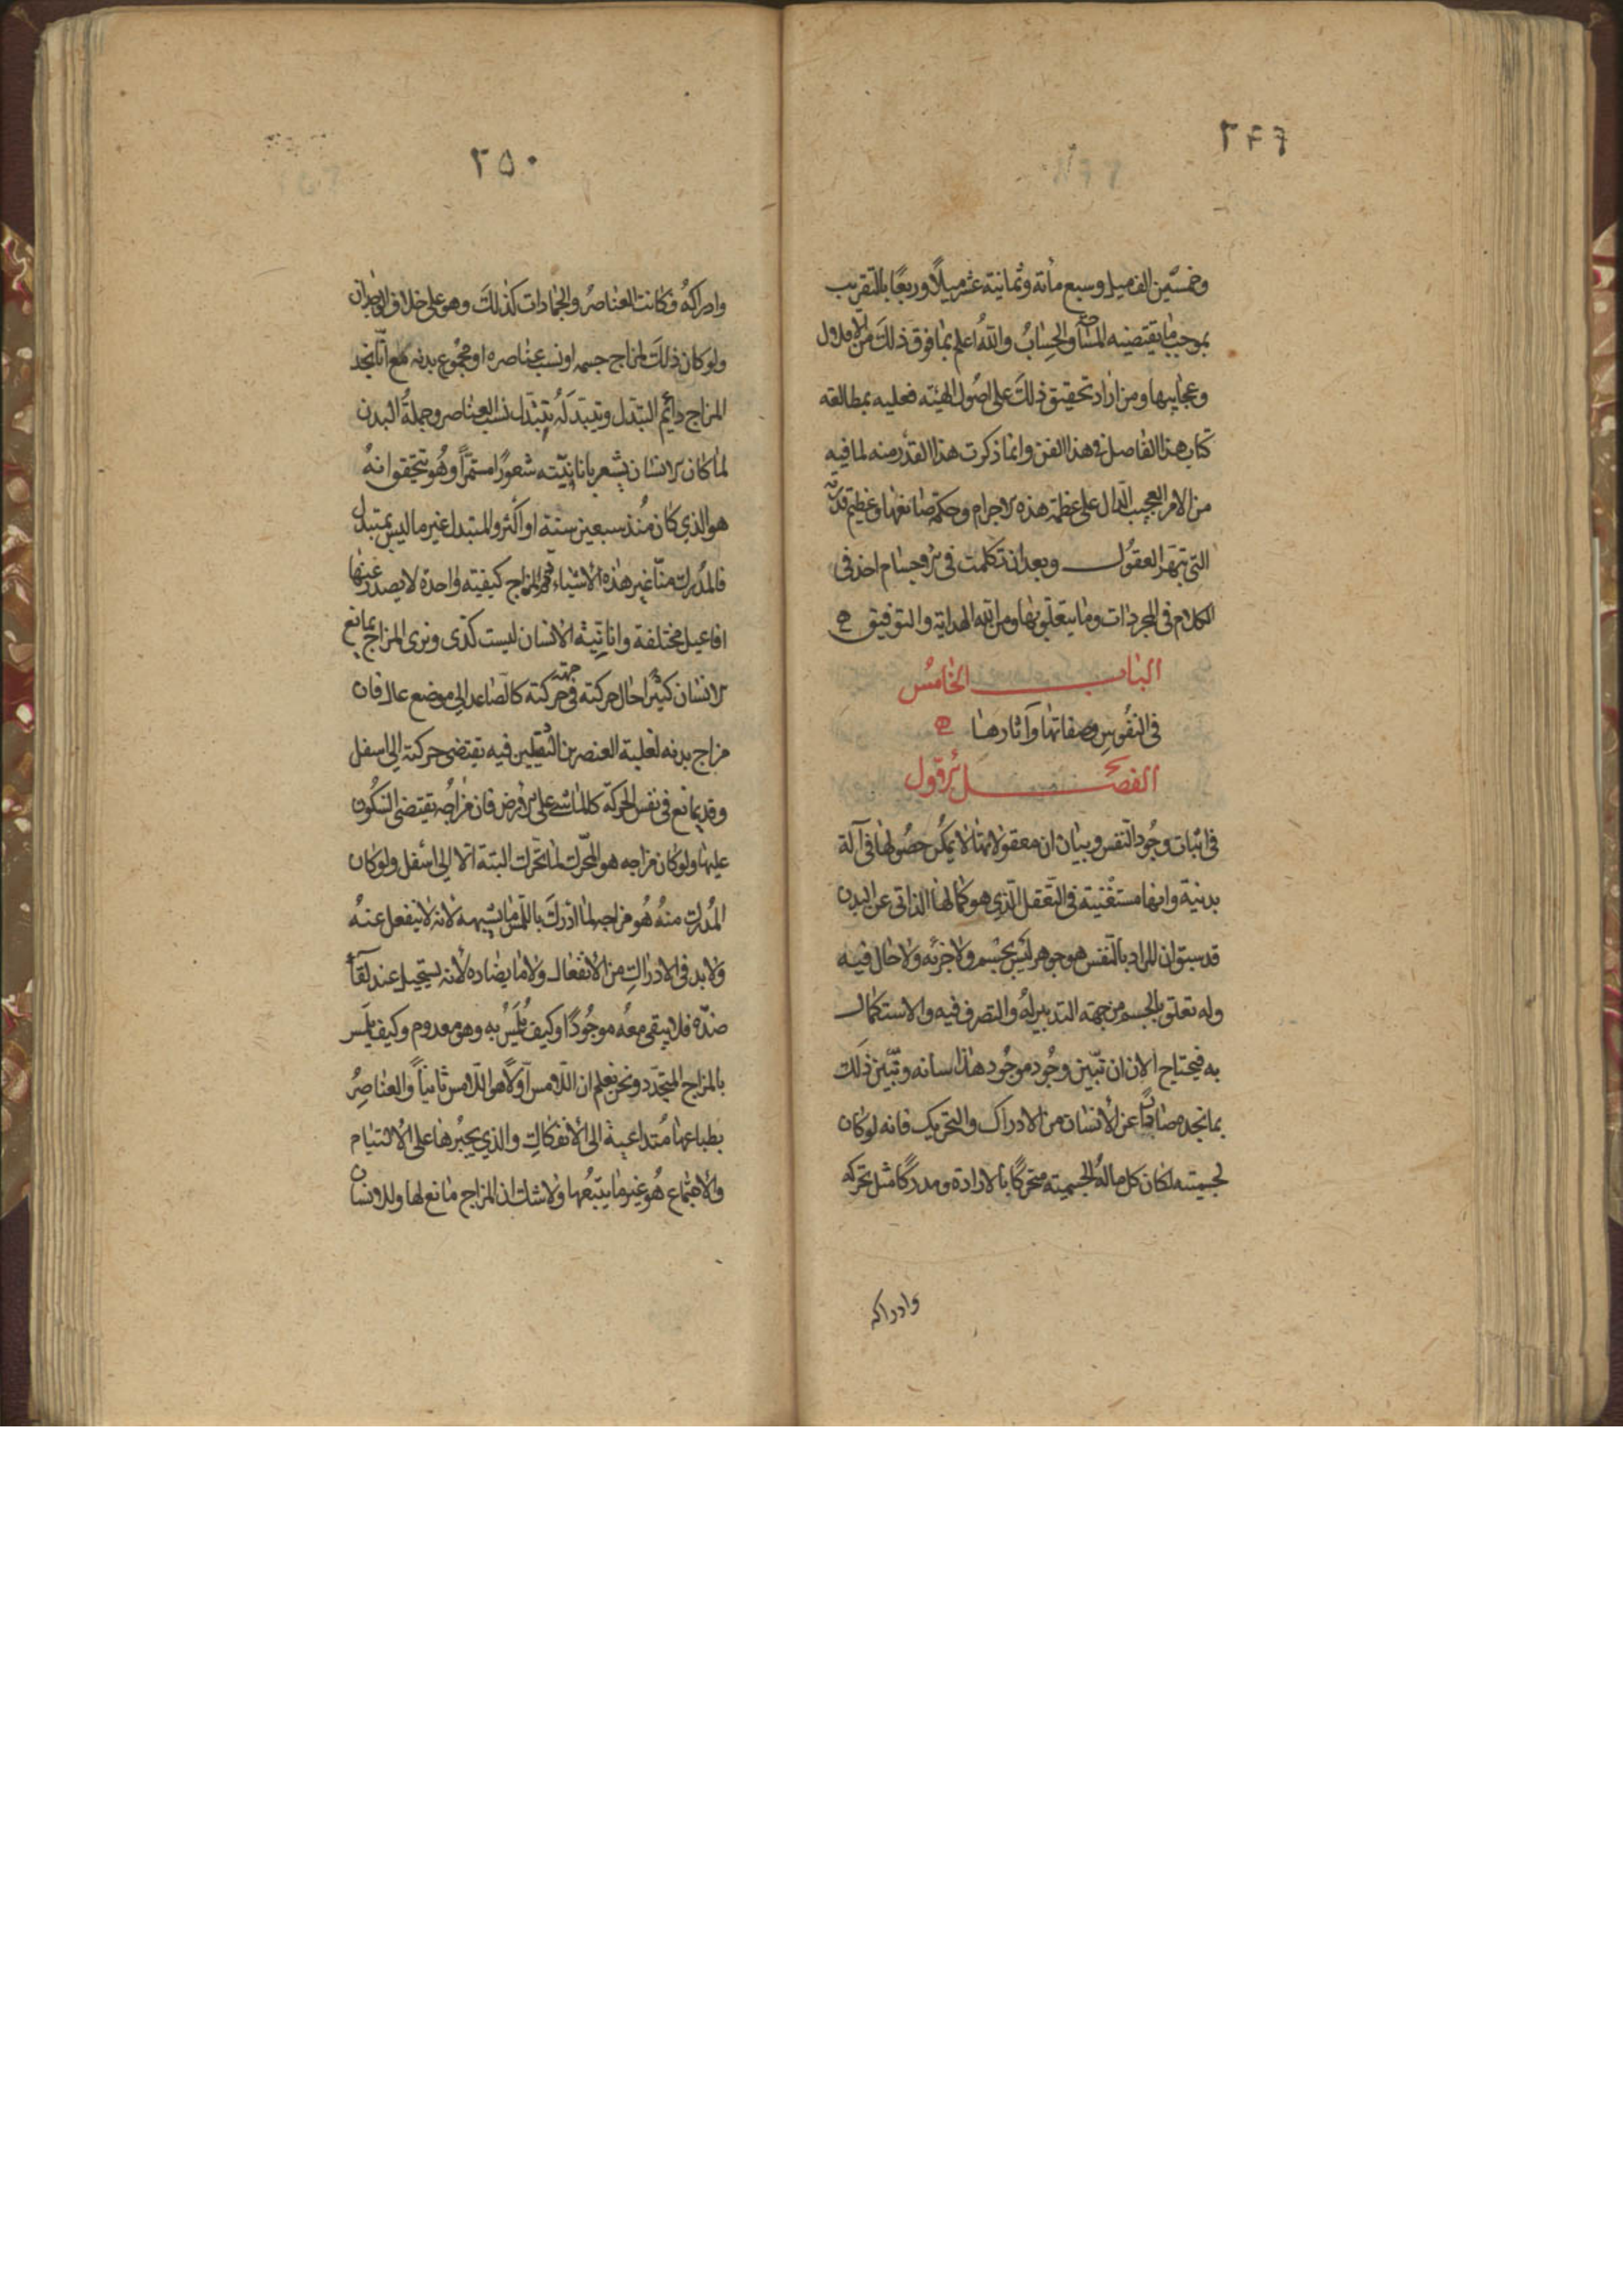 ٢٤٩
وخمسين الف ميل وسبع مائة وثمانية عشر ميلاً وربعًا بالتقريب
بموجب ما يقتضيه المساحة والحساب والله اعلم بما فوق ذلك من الافلاك
وعجايبها ومن اراد تحقيق ذلك على اصول الهيئة فعليه بمطالعة
كتاب هذا الفاضل في هذا الفن وانما ذكرت هذا القدر منه لما فيه
من الامر العجيب الدال على عظمة هذه الاجرام وحكمة صانعها وعظيم قدرته
التي تبهر العقول وبعد ان تكلمت في الاجسام اخذ في
الكلام في المجردات وما يتعلق بها ومن الله الهداية والتوفيق
الباب الخامس
في النفوس وصفاتها وآثارها
الفصل الاول
في اثبات وجود النفس وبيان ان معقولاتها لا يمكن حصولها في آلة
بدنية وانها مستغنية في التعقل الذي هو كمالها الذاتي عن البدن
قد سبق ان المراد بالنفس هو جوهر ليس بجسم ولا جزئه ولا حال فيه
وله تعلق بالجسم من جهة التدبير له والتصرف فيه والاستكمال
به فيحتاج الان ان تبين وجود موجود هذا شانه وتبين ذلك
بما نجده صادرًا عن الانسان من الادراك والتحريك فانه لو كان
لجسميته لكان كل ما له الجسمية متحركًا بالارادة ومدركًا مثل تحركه
وادراكه
٢٥٠
وادراكه وكانت العناصر والجمادات كذلك وهو على خلاف الوجدان
ولو كان ذلك لمزاج جسمه او نسب عناصره او مجموع بدنه مع انا نجد
المزاج دائم التبدل وتبدله بتبدل نسب العناصر وجملة البدن
لما كان الانسان يشعر بانانيته شعورًا مستمرًا وهو يتحقق انه
هو الذي كان منذ سبعين سنة او اكثر والمتبدل غير ما ليس بمتبدل
فالمدرك منا غير هذه الاشياء ثم المزاج كيفية واحدة لا يصدر عنها
افاعيل مختلفة وانانية الانسان ليست كذى ونرى المزاج يمانع
الانسان كثيرًا حال حركته في جهة حركته كالصاعد الى موضع عال فان
مزاج بدنه لغلبة العنصرين الثقيلين فيه يقتضى حركة الى اسفل
وقد يمانع في نفس الحركة كالماشي على الارض فان مزاجه يقتضى السكون
عليها ولو كان مزاجه هو المحرك لما تحرك البتة الا الى اسفل ولو كان
المدرك منه هو مزاجه لما ادرك باللمس ما يشبهه لانه لا ينفعل عنه
ولا بد في الادراك من الانفعال ولا ما يضاده لانه يستحيل عند لقاء
ضده فلا يبقى معه موجودًا وكيف يلمس به وهو معدوم وكيف يلمس
بالمزاج المتجدد ونحن نعلم ان اللامس اولاً هو اللامس ثانيًا والعناصر
بطباعها متداعية الى الانفكاك والذي يجبرها على الالتيام
والاجتماع هو غير ما يتبعها ولا شك ان المزاج مانع لها وللانسان